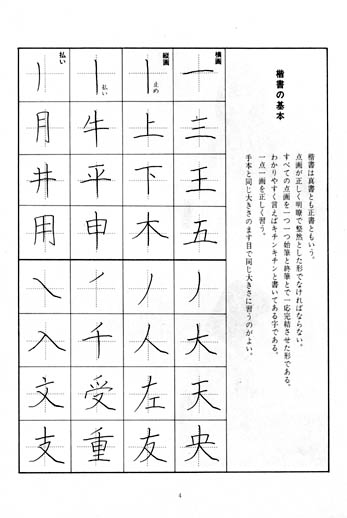 楷書の基本
楷書は真書とも正書ともいう。
点画が正しく明瞭で整然とした形でなければならない。
すべての点画を一つ一つ始筆と終筆とで一応完結させた形である。
わかりやすく言えばキチンキチンと書いてある字である。
一点一画を正しく習う。
手本と同じ大きさのます目で同じ大きさに習うのがよい。
横画
一
三
王
五
ノ
大
天
央
縦画
止め
上
下
木
ノ
人
左
友
払い
牛
平
申
千
受
重
払い
月
井
用
入
文
支
4